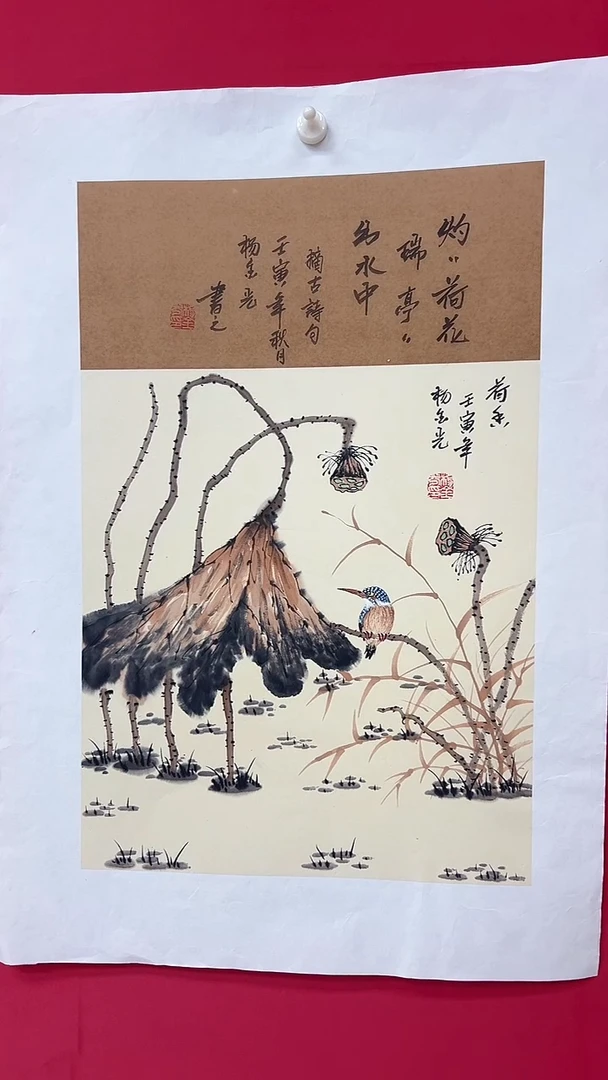 灼〃荷花
瑞亭〃
出水中
摘古詩句
壬寅年秋月
杨金光
書之
荷香
壬寅年
杨金光